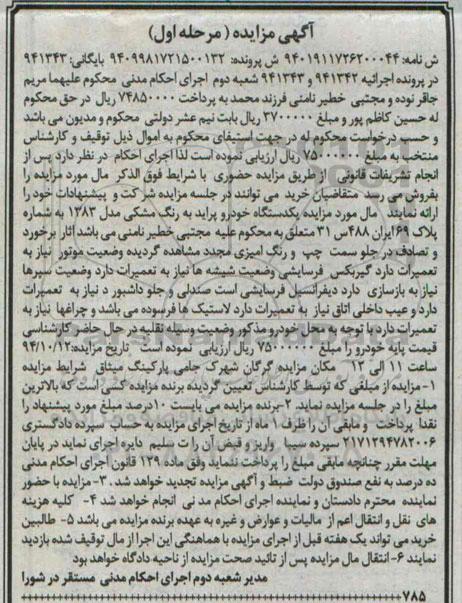 آگهی مزایده ( مرحله اول)
ش نامه: ۹۴۰۱۹۱۱۷۲۶۲۰۰۰۴۴ ش پرونده: ۹۴۰۹۹۸۱۷۲۱۵۰۰۱۳۲ بایگانی: ۹۴۱۳۴۳
در پرونده اجرائیه ۹۴۱۳۴۲ و ۹۴۱۳۴۳ شعبه دوم اجرای احکام مدنی محکوم علیهما مریم
جافر نوده و مجتبی خطیر نامنی فرزند محمد به پرداخت ۷۴۸۵۰۰۰۰ ریال در حق محکوم
له حسین کاظم پور و مبلغ ۳۷۰۰۰۰۰ ریال بابت نیم عشر دولتی محکوم و مدیون می باشد
و حسب درخواست محکوم له در جهت استیفای محکوم به اموال ذیل توقیف و کارشناس
منتخب به مبلغ ۷۵۰۰۰۰۰۰ ریال ارزیابی نموده است لذا اجرای احکام در نظر دارد پس از
انجام تشریفات قانونی از طریق مزایده حضوری با شرایط فوق الذکر مال مورد مزایده را
بفروش می رسد متقاضیان خرید می توانند در جلسه مزایده شرکت و پیشنهادات خود را
ارائه نمایند مال مورد مزایده یکدستگاه خودرو پراید به رنگ مشکی مدل ۱۳۸۳ به شماره
پلاک ۶۹ایران ۴۸۸س ۳۱ متعلق به محکوم علیه مجتبی خطیر نامنی می باشد آثار برخورد
و تصادف در جلو سمت چپ و رنگ امیزی مجدد مشاهده گردیده وضعیت موتور نیاز به
تعمیرات دارد گیربکس فرسایشی وضعیت شیشه ها نیاز به تعمیرات دارد وضعیت سپرها
نیاز به بازسازی دارد دیفرانسیل فرسایشی است صندلی و جلو داشبورد نیاز به تعمیرات
دارد و عیب داخلی اتاق نیاز به تعمیرات دارد لاستیک ها فرسوده می باشد و چراغها نیاز به
تعمیرات دارد با توجه به محل خودرو مذکور وضعیت وسیله نقلیه در حال حاضر کارشناسی
قیمت پایه خودرو را مبلغ ۷۵۰۰۰۰۰۰ ریال ارزیابی نموده است تاریخ مزایده: ۹۴/۱۰/۱۲
ساعت ۱۱ الی ۱۲ مکان مزایده گرگان شهرک جامی پارکینگ میثاق شرایط مزایده
۱- مزایده از مبلغی که توسط کارشناس تعیین گردیده برنده مزایده کسی است که بالاترین
مبلغ را در جلسه مزایده نماید. ۲-برنده مزایده می بایست ۱۰درصد مبلغ مورد پیشنهاد را
نقدا پرداخت و مابقی آن را ظرف ۱ ماه از تاریخ اجرای مزایده به حساب سپرده دادگستری
۲۱۷۱۲۹۴۷۸۲۰۰۶ سپرده سیبا واریز و قبض آن را ت سلیم دایره اجرای نماید در پایان
مهلت مقرر چنانچه مابقی مبلغ را پرداخت ننماید وفق ماده ۱۲۹ قانون اجرای احکام مدنی
ده درصد به نفع صندوق دولت ضبط و آگهی مزایده تجدید خواهد شد . ۳-مزایده با حضور
نماینده محترم دادستان و نماینده اجرای احکام مدنی انجام خواهد شد ۴- کلیه هزینه
های نقل و انتقال اعم از مالیات و عوارض و غیره به عهده برنده مزایده می باشد ۵- طالبین
خرید می تواند یک هفته قبل از اجرای مزایده با هماهنگی این اجرا از مال توقیف شده بازدید
نمایند ۶-انتقال مال مزایده پس از تائید صحت مزایده از ناحیه دادگاه خواهد بود
مدیر شعبه دوم اجرای احکام مدنی مستقر در شورا
۷۸۵